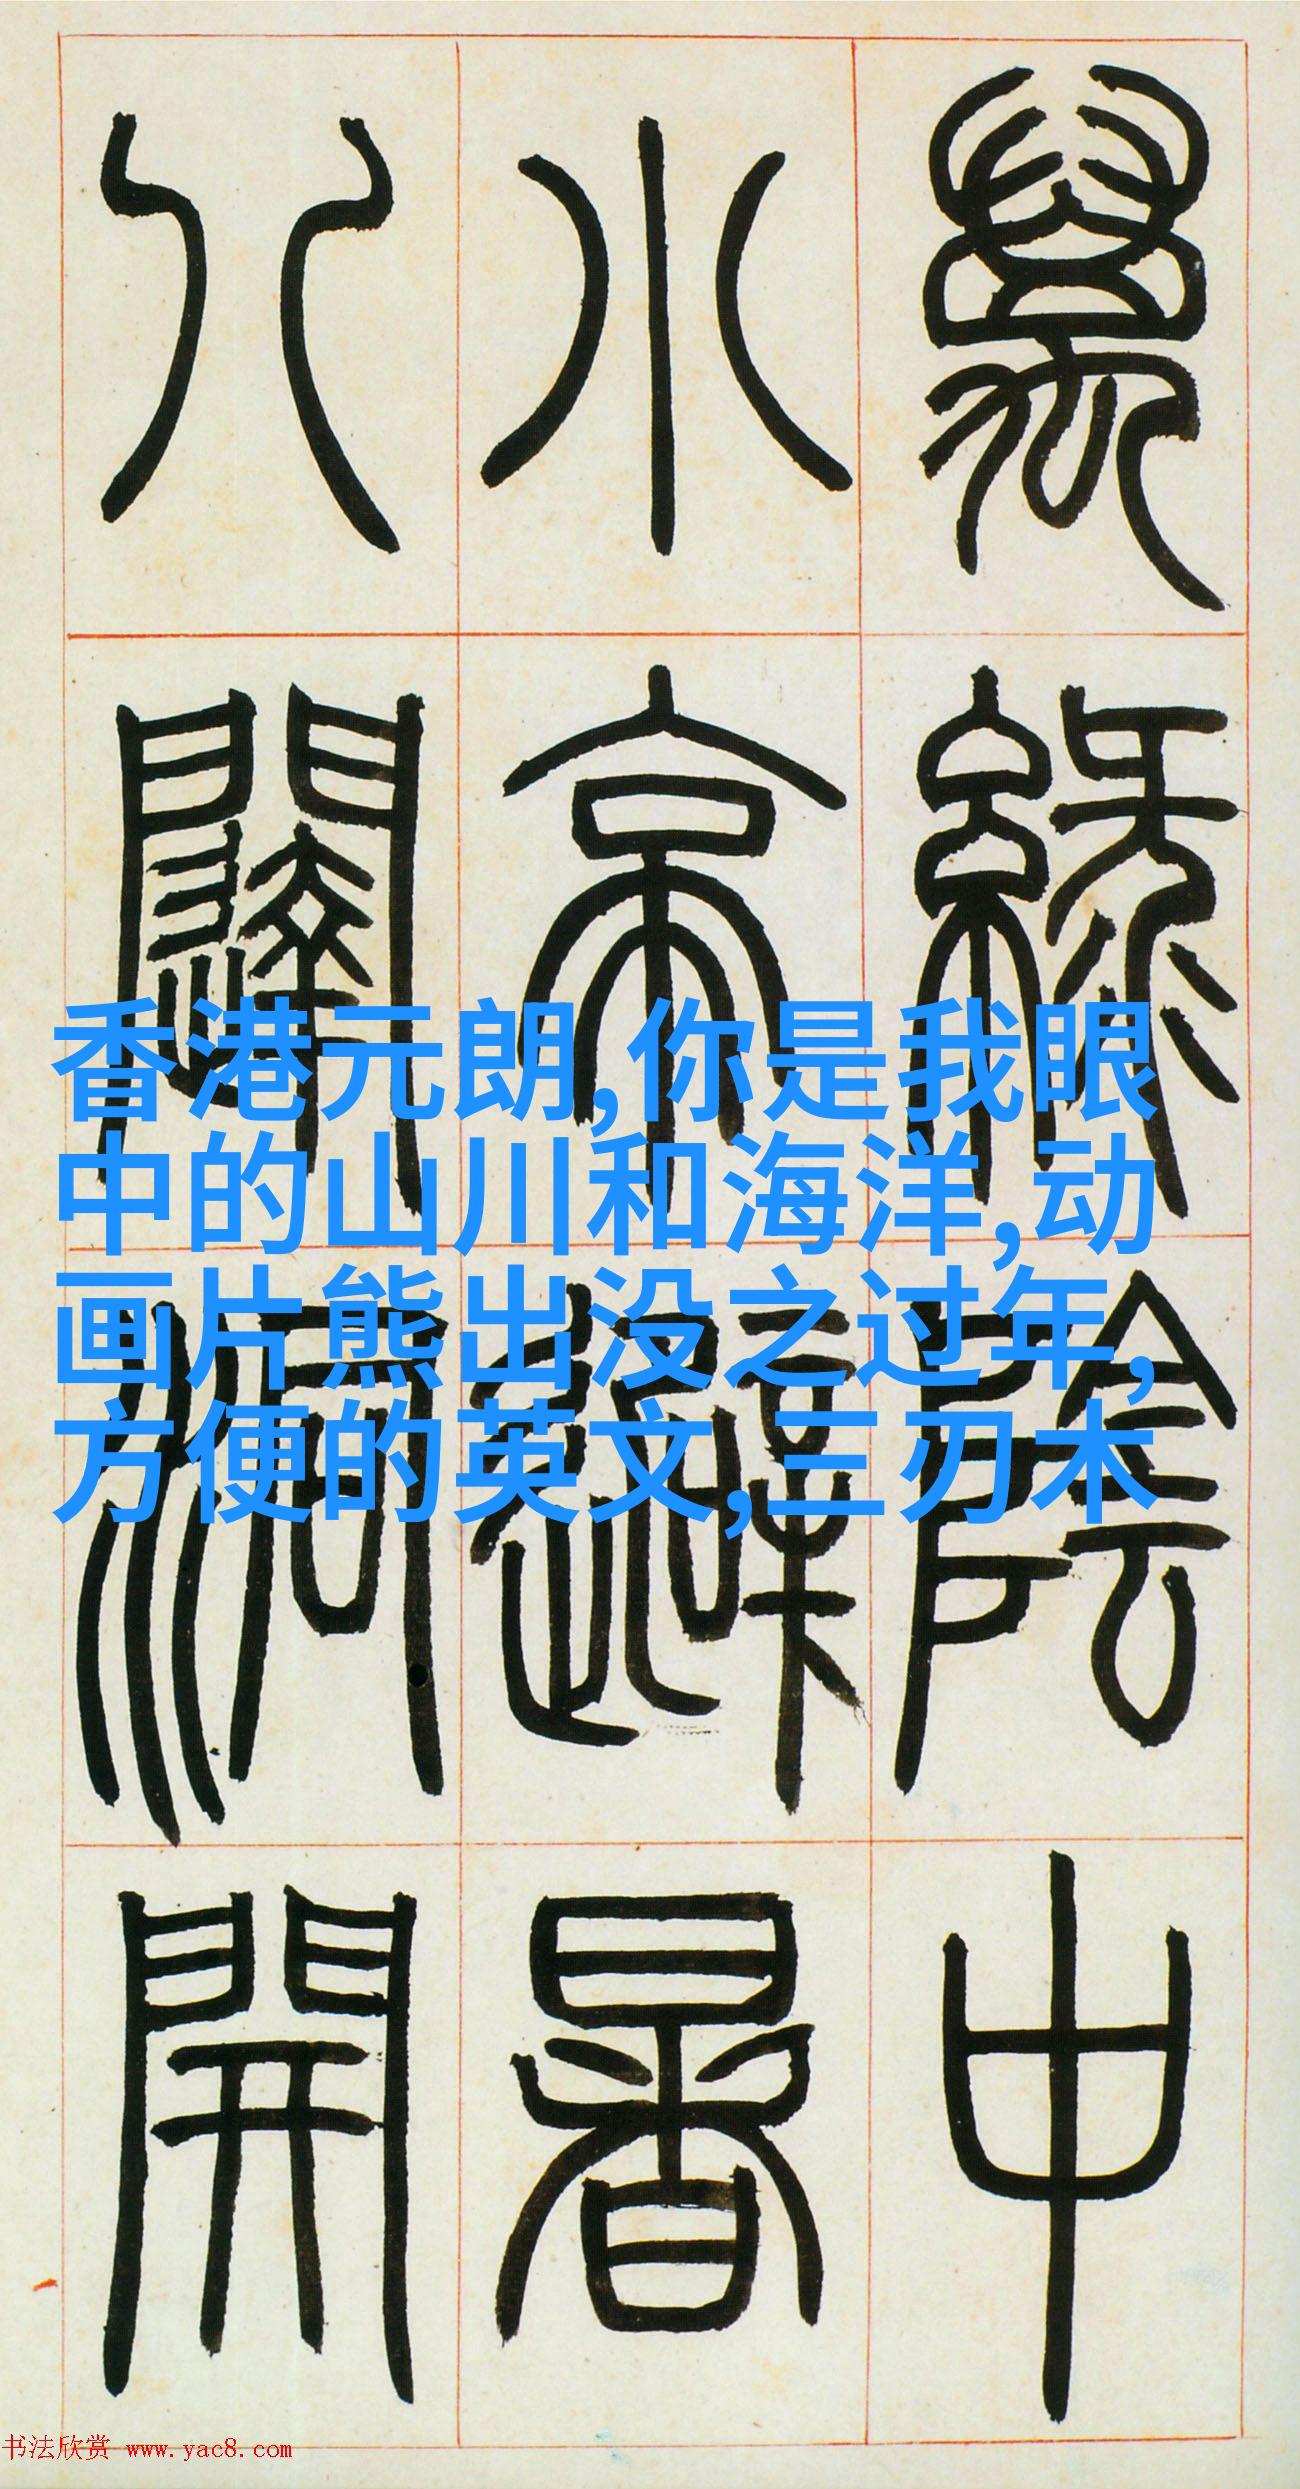 萬綠陰中
小亭避暑
八闥洞開
香港元朗,你是我眼
中的山川和海洋,动
画片熊出没之过年,
方便的英文,三刃木
书法欣赏 www.yac8.com